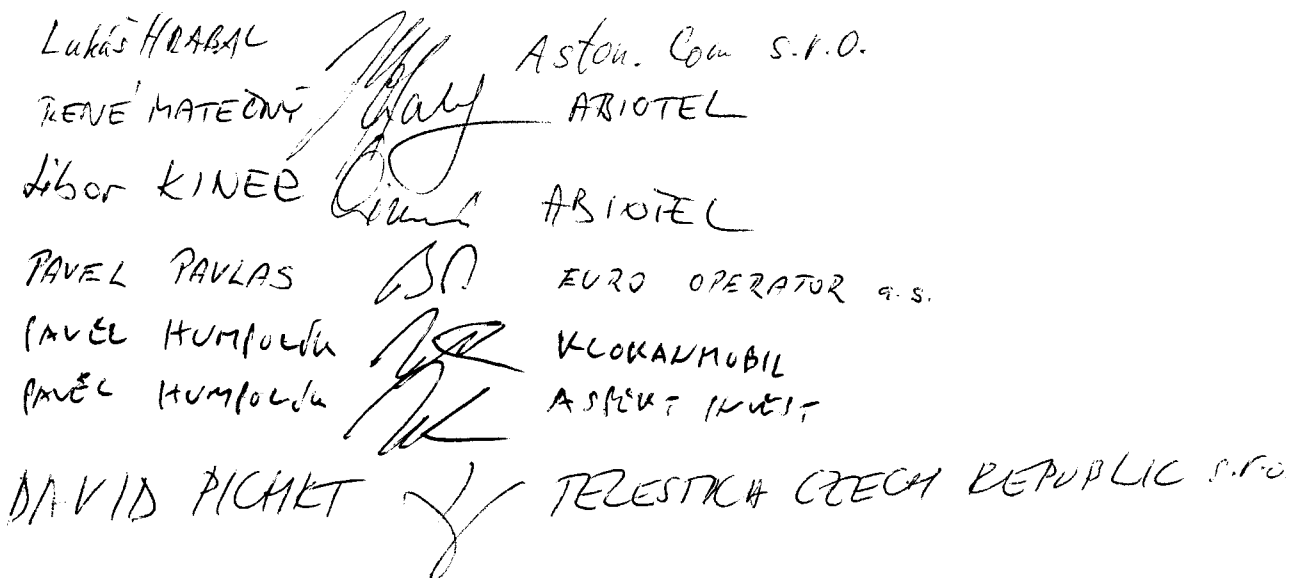 Lukáš HRABAL Aston. Com s.r.o.
RENÉ MATEČNÝ ABIOTEL
Libor KINER ABIOTEL
PAVEL PAVLAS EURO OPERATOR a.s.
PAVEL HUMPOLÍK KLOKANMOBIL
PAVEL HUMPOLÍK ASPEKT INVEST
DAVID CZECH REPUBLIC s.r.o